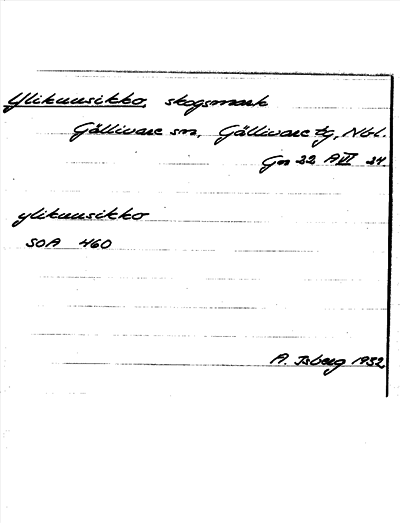 Ylikuusikko, skogsmark
Gällivare sn, Gällivare tg, Nbl.
Gn 22 A VII 34
ylikuusikko
SOA 460
A. Isberg 1932